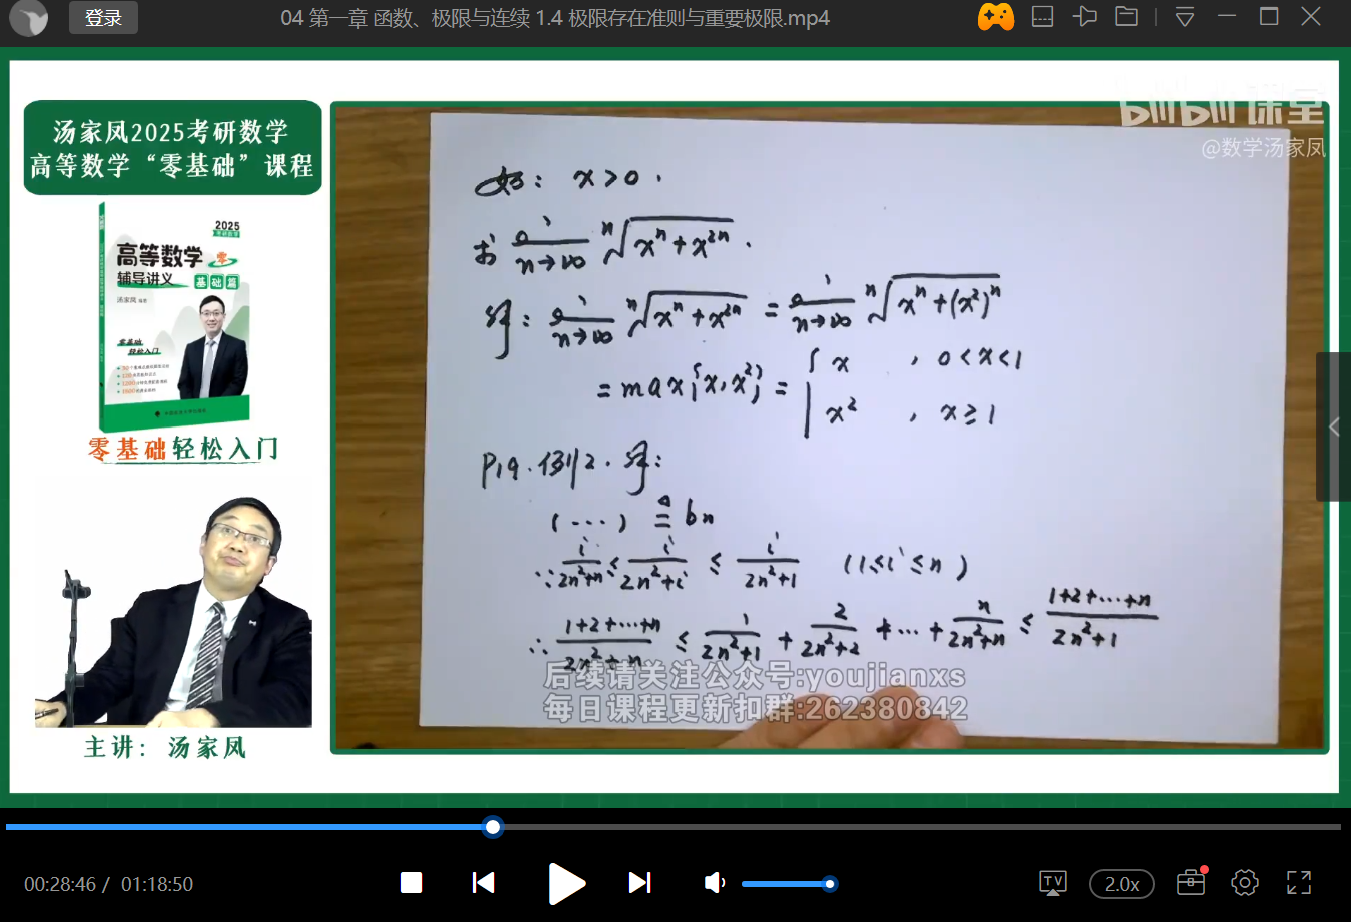 登录
04 第一章 函数、极限与连续 1.4 极限存在准则与重要极限.mp4
汤家凤2025考研数学
高等数学“零基础”课程
2025
高等数学 零
辅导讲义 基础篇
汤家凤
零基础
轻松入门
零基础轻松入门
主讲： 汤家凤
bilibili 课堂
@数学汤家凤
如: x>0.
求 lim n→∞ ⁿ√(xⁿ+x²ⁿ).
解: lim n→∞ ⁿ√(xⁿ+x²ⁿ) = lim n→∞ ⁿ√(xⁿ+(x²)ⁿ)
= max{x, x²} = { x , 0<x<1
x² , x≥1
P19.例2.解:
(...) ≜ bn
∵ i/(2n²+n) ≤ i/(2n²+i) ≤ i/(2n²+1) (1≤i≤n)
∴ (1+2+...+n)/(2n²+n) ≤ 1/(2n²+1) + 2/(2n²+2) +...+ n/(2n²+n) ≤ (1+2+...+n)/(2n²+1)
后续请关注公众号:youjianxs
每日课程更新扣群:262380842
00:28:46 / 01:18:50
TV
2.0x